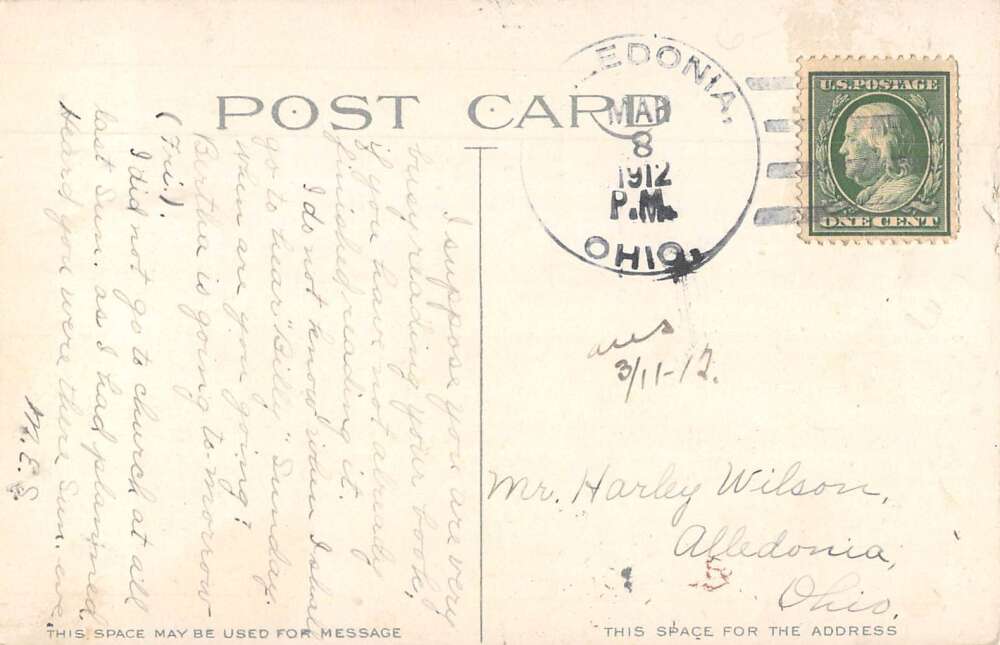 POST CARD
EDONIA,
MAR
8
1912
P.M.
OHIO.
U.S. POSTAGE
ONE CENT
I suppose you are very
busy reading your book,
if you have not already
finished reading it.
I do not know when I shall
go to hear "Billy" Sunday.
When are you going?
Bertha is going to-morrow
(Fri.).
I did not go to church at all
last Sun. as I had planned.
Heard you were there Sun. eve.
M. E. S.
ans
3/11-12.
Mr. Harley Wilson,
Alledonia,
Ohio.
THIS SPACE MAY BE USED FOR MESSAGE
THIS SPACE FOR THE ADDRESS